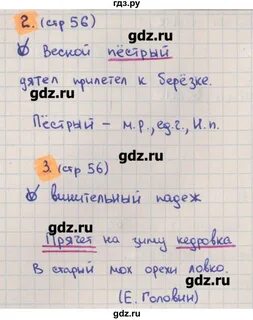 гдз.ру
2. (стр 56)
Веской пёстрый
дятел прилетел к берёзке.
Пёстрый – м.р., ед.ч., И.п.
3. (стр 56)
винительный падеж
Прячет на зиму кедровка
В старый мох орехи ловко.
(Е. Головин)
gdz.ru
gdz.ru
gdz.ru
gdz.ru
gdz.ru
gdz.ru
gdz.ru
gdz.ru